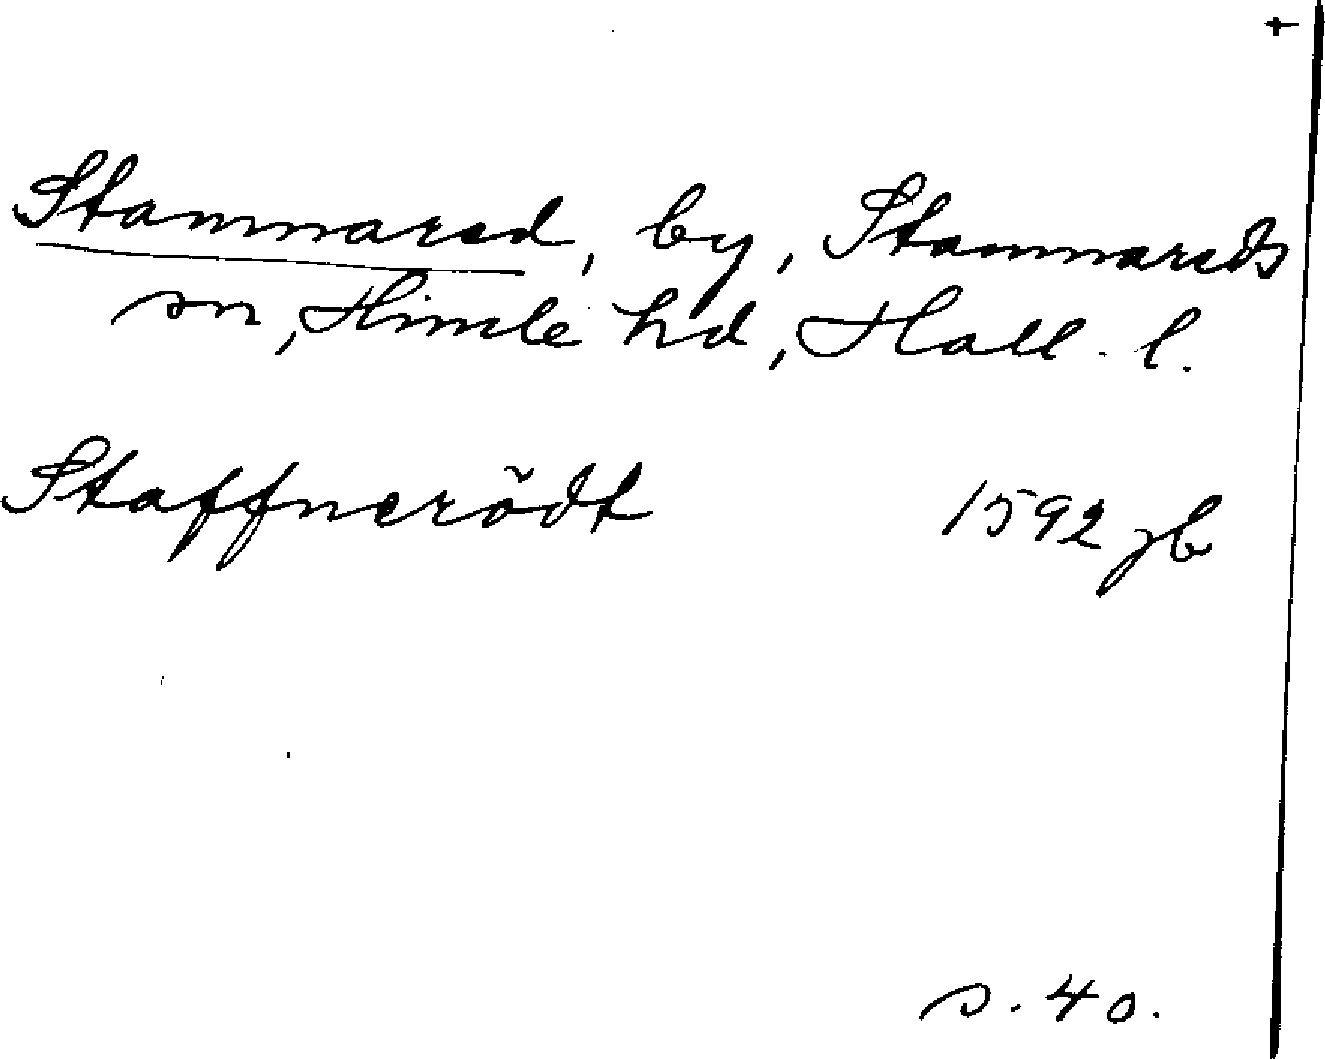 +
Stamnared, by, Stamnareds
sn, Himle hd, Hall. l.
Staffnerödt 1592 jb
s. 40.